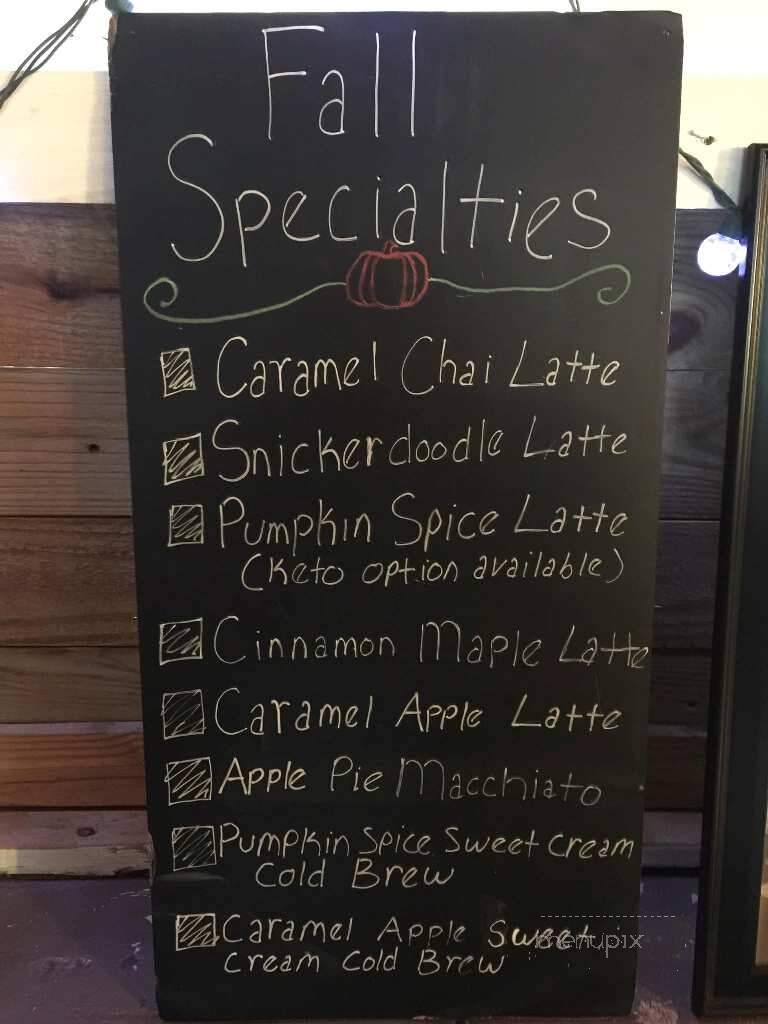 Fall
Specialties
Caramel Chai Latte
Snickerdoodle Latte
Pumpkin Spice Latte
(Keto option available)
Cinnamon Maple Latte
Caramel Apple Latte
Apple Pie Macchiato
Pumpkin Spice Sweet Cream
Cold Brew
Caramel Apple Sweet
Cream Cold Brew
menupix